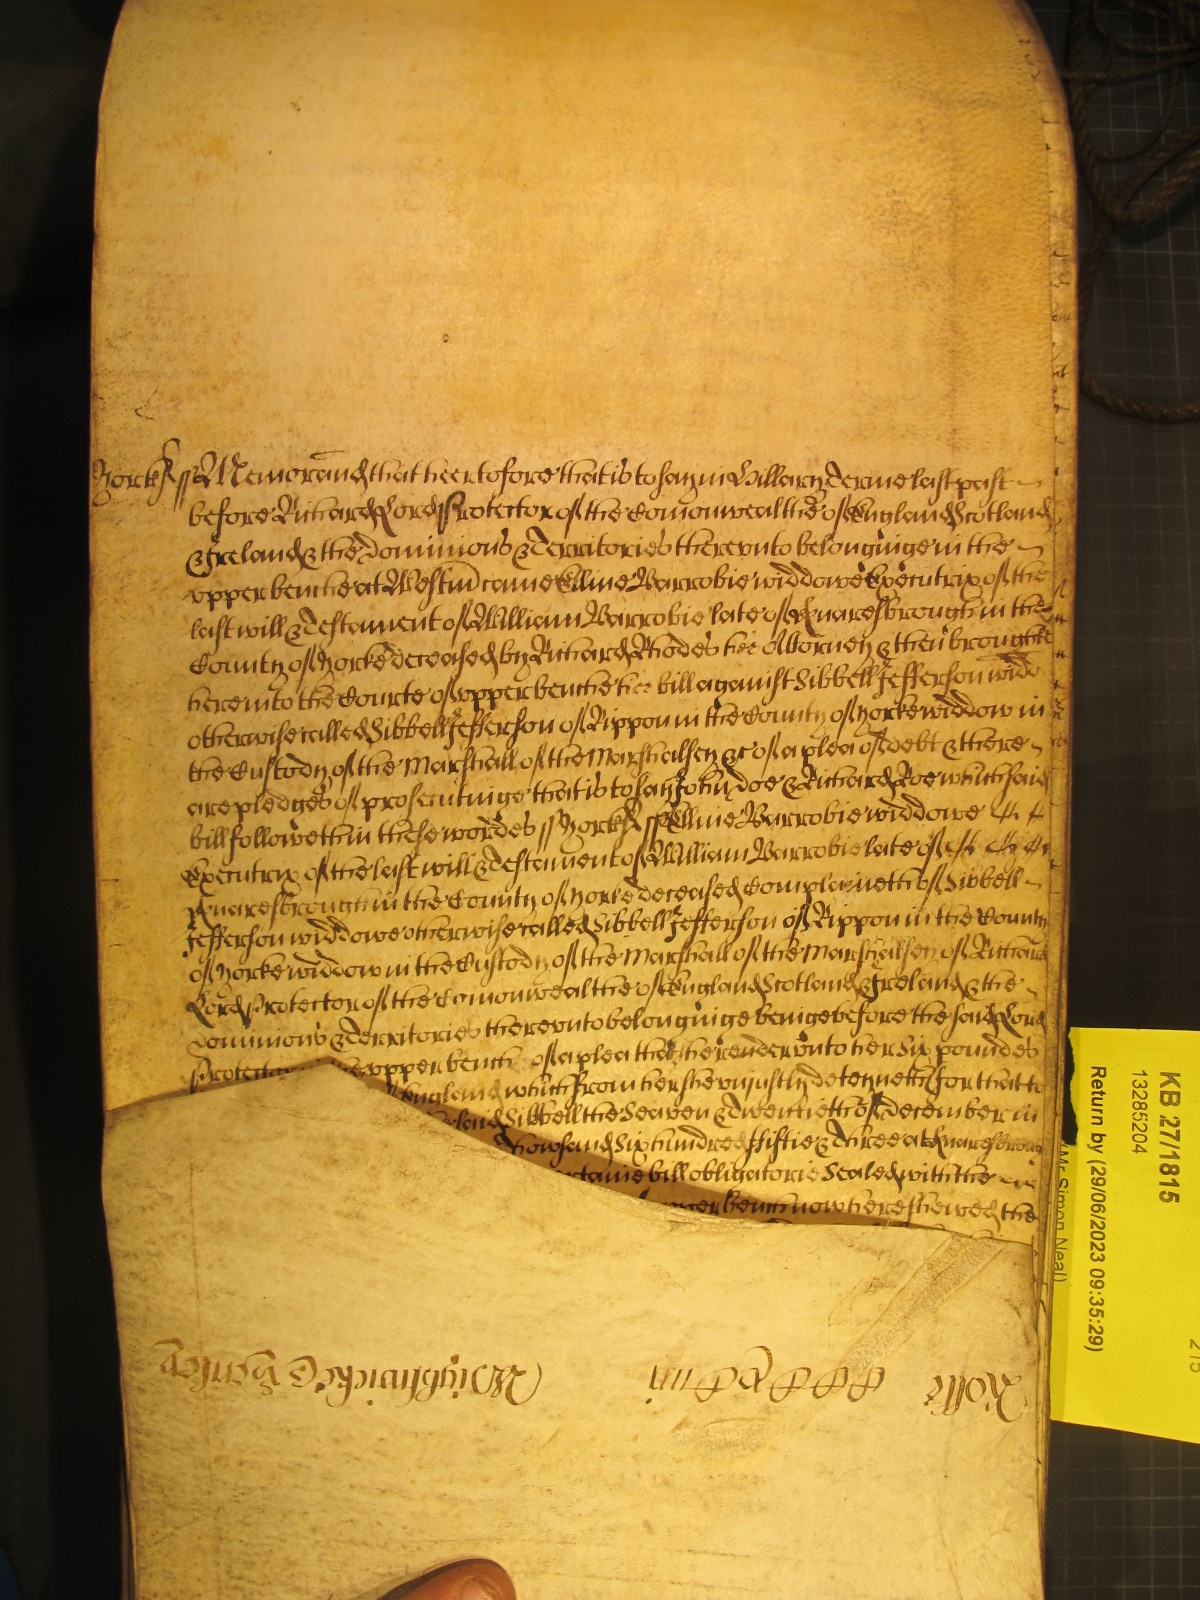 Yorks ss Memorand that heertofore that is to say in Hillary Terme last past
before Richard Lord Protector of the Comonwealthe of England Scotland
& Ireland & the Dominions & Territories therevnto belonginge in the
vpper benche at Westm came Elline Barrobie widdowe Executrix of the
last will & Testament of William Barrobie late of Knaresbrough in the
County of Yorke deceased by Richard Rhodes her Attorney & then brought
here into the Courte of vpper benche her bill against Sibbell Jefferson widd
otherwise called Sibbell Jefferson of Rippon in the County of Yorke widdow in
the Custody of the Marshall of the Marshalsey &c of a plea of debt & there
are pledges of prosecutinge that is to say John Doe & Richard Roe which said
bill followeth in these wordes ss Yorks ss Elline Barrobie widdowe
Executrix of the last will & Testament of William Barrobie late of
Knaresbrough in the County of Yorke deceased Complaineth of Sibbell
Jefferson widdowe otherwise called Sibbell Jefferson of Rippon in the County
of Yorke widdow in the Custody of the Marshall of the Marshalsey of Richard
Lord Protector of the Comonwealthe of England Scotland & Ireland & the
Dominions & Territories therevnto belonginge beinge before the said Lord
Protector vpper bench of a plea that she render vnto her Six poundes
England which from her she vnjustly deteyneth for that to
said Sibbell the Seaven & Twentieth of December in
thowsand Six hundred fiftie & three at Knaresbrough
certaine bill obligatorie Sealed with the
vpper bench now here shewed the
Wightwicke & Henley
Rolle
KB 27/1815
13285204
Return by (29/06/2023 09:35:29)
(Mr Simon Neal)